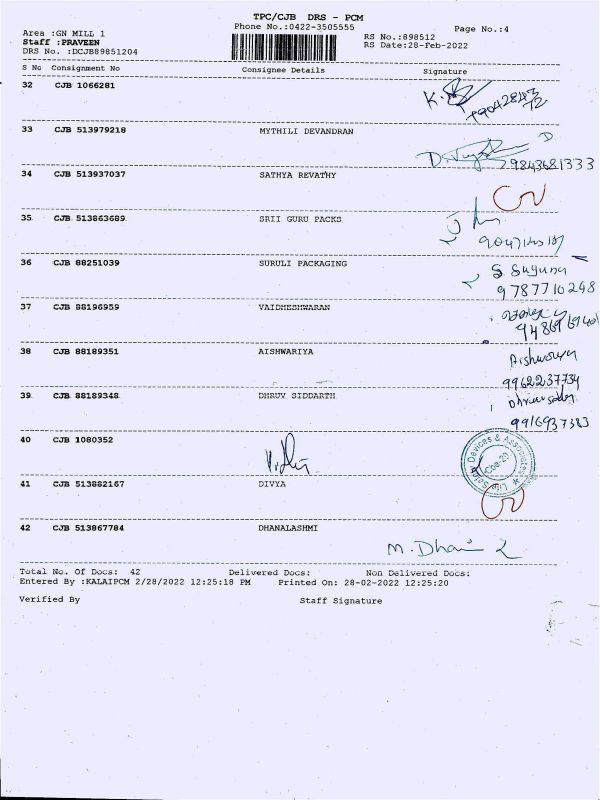 TPC/CJB DRS - PCM
Phone No.:0422-3505555
Page No.:4
Area :GN MILL 1
RS No.:898512
Staff :PRAVEEN
RS Date:28-Feb-2022
DRS No. :DCJB89851204
S No Consignment No Consignee Details Signature
32 CJB 1066281
33 CJB 513979218 MYTHILI DEVANDRAN
D.
9843681333
34 CJB 513937037 SATHYA REVATHY
35 CJB 513863689 SRII GURU PACKS
36 CJB 88251039 SURULI PACKAGING
S Suguna
9787710248
37 CJB 88196959 VAIDHESHWARAN
38 CJB 88189351 AISHWARIYA
Aishwariya
9962237734
39 CJB 88189348 DHRUV SIDDARTH
9916937383
40 CJB 1080352
41 CJB 513882167 DIVYA
42 CJB 513867784 DHANALASHMI
Total No. Of Docs: 42 Delivered Docs: Non Delivered Docs:
Entered By :KALAIPCM 2/28/2022 12:25:18 PM Printed On: 28-02-2022 12:25:20
Verified By Staff Signature